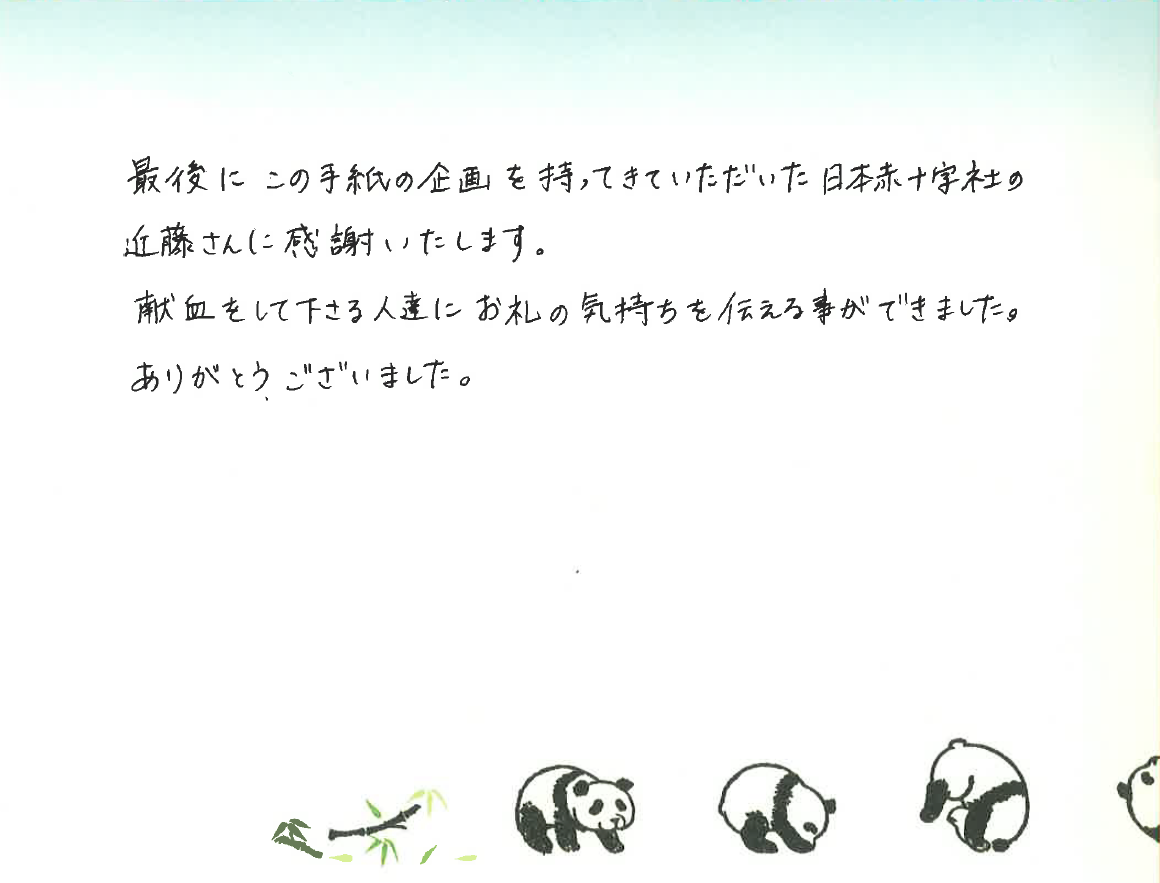 最後に この手紙の企画を持ってきていただいた日本赤十字社の
近藤さんに感謝いたします。
献血をして下さる人達にお礼の気持ちを伝える事ができました。
ありがとうございました。